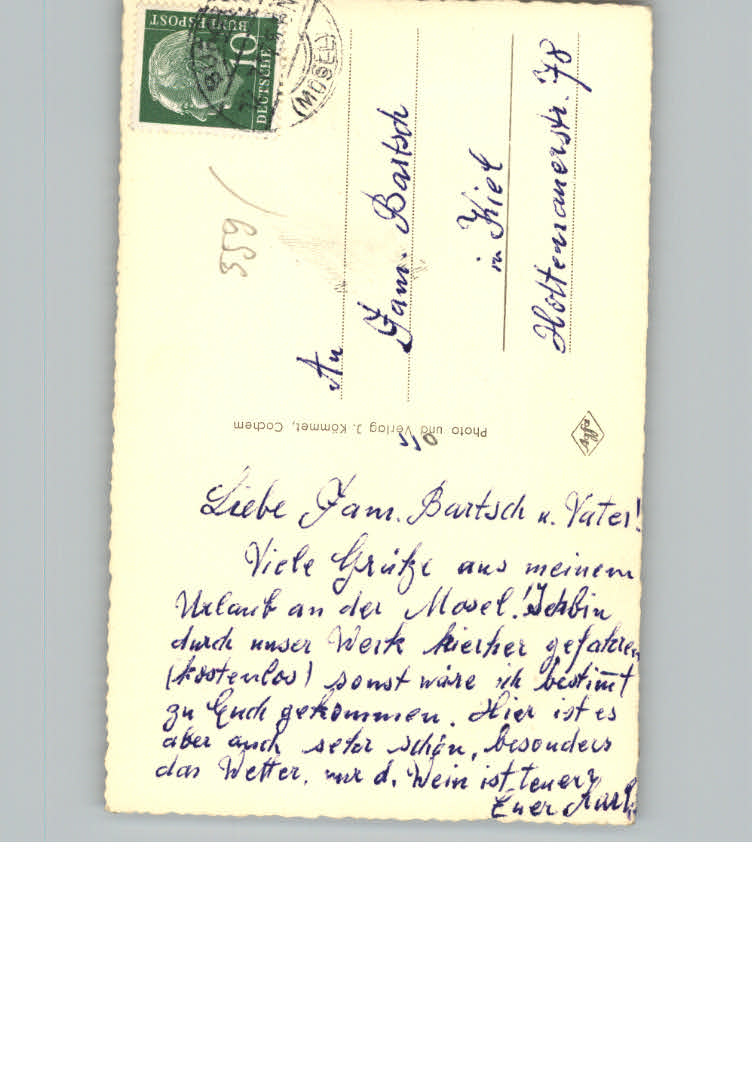 Liebe Fam. Bartsch u. Vater!
Viele Grüße aus meinem
Urlaub an der Mosel! Ich bin
durch unser Werk hierher gefahren
(kostenlos) sonst wäre ich bestimt
zu Euch gekommen. Hier ist es
aber auch sehr schön, besonders
das Wetter, nur d. Wein ist teuer.
Euer Karl
An
Fam. Bartsch
in Kiel
Holtenauerstr. 78
Photo und Verlag J. Kömmet, Cochem
Agfa
559/
DEUTSCHE
BUNDESPOST
10
(MOSEL)